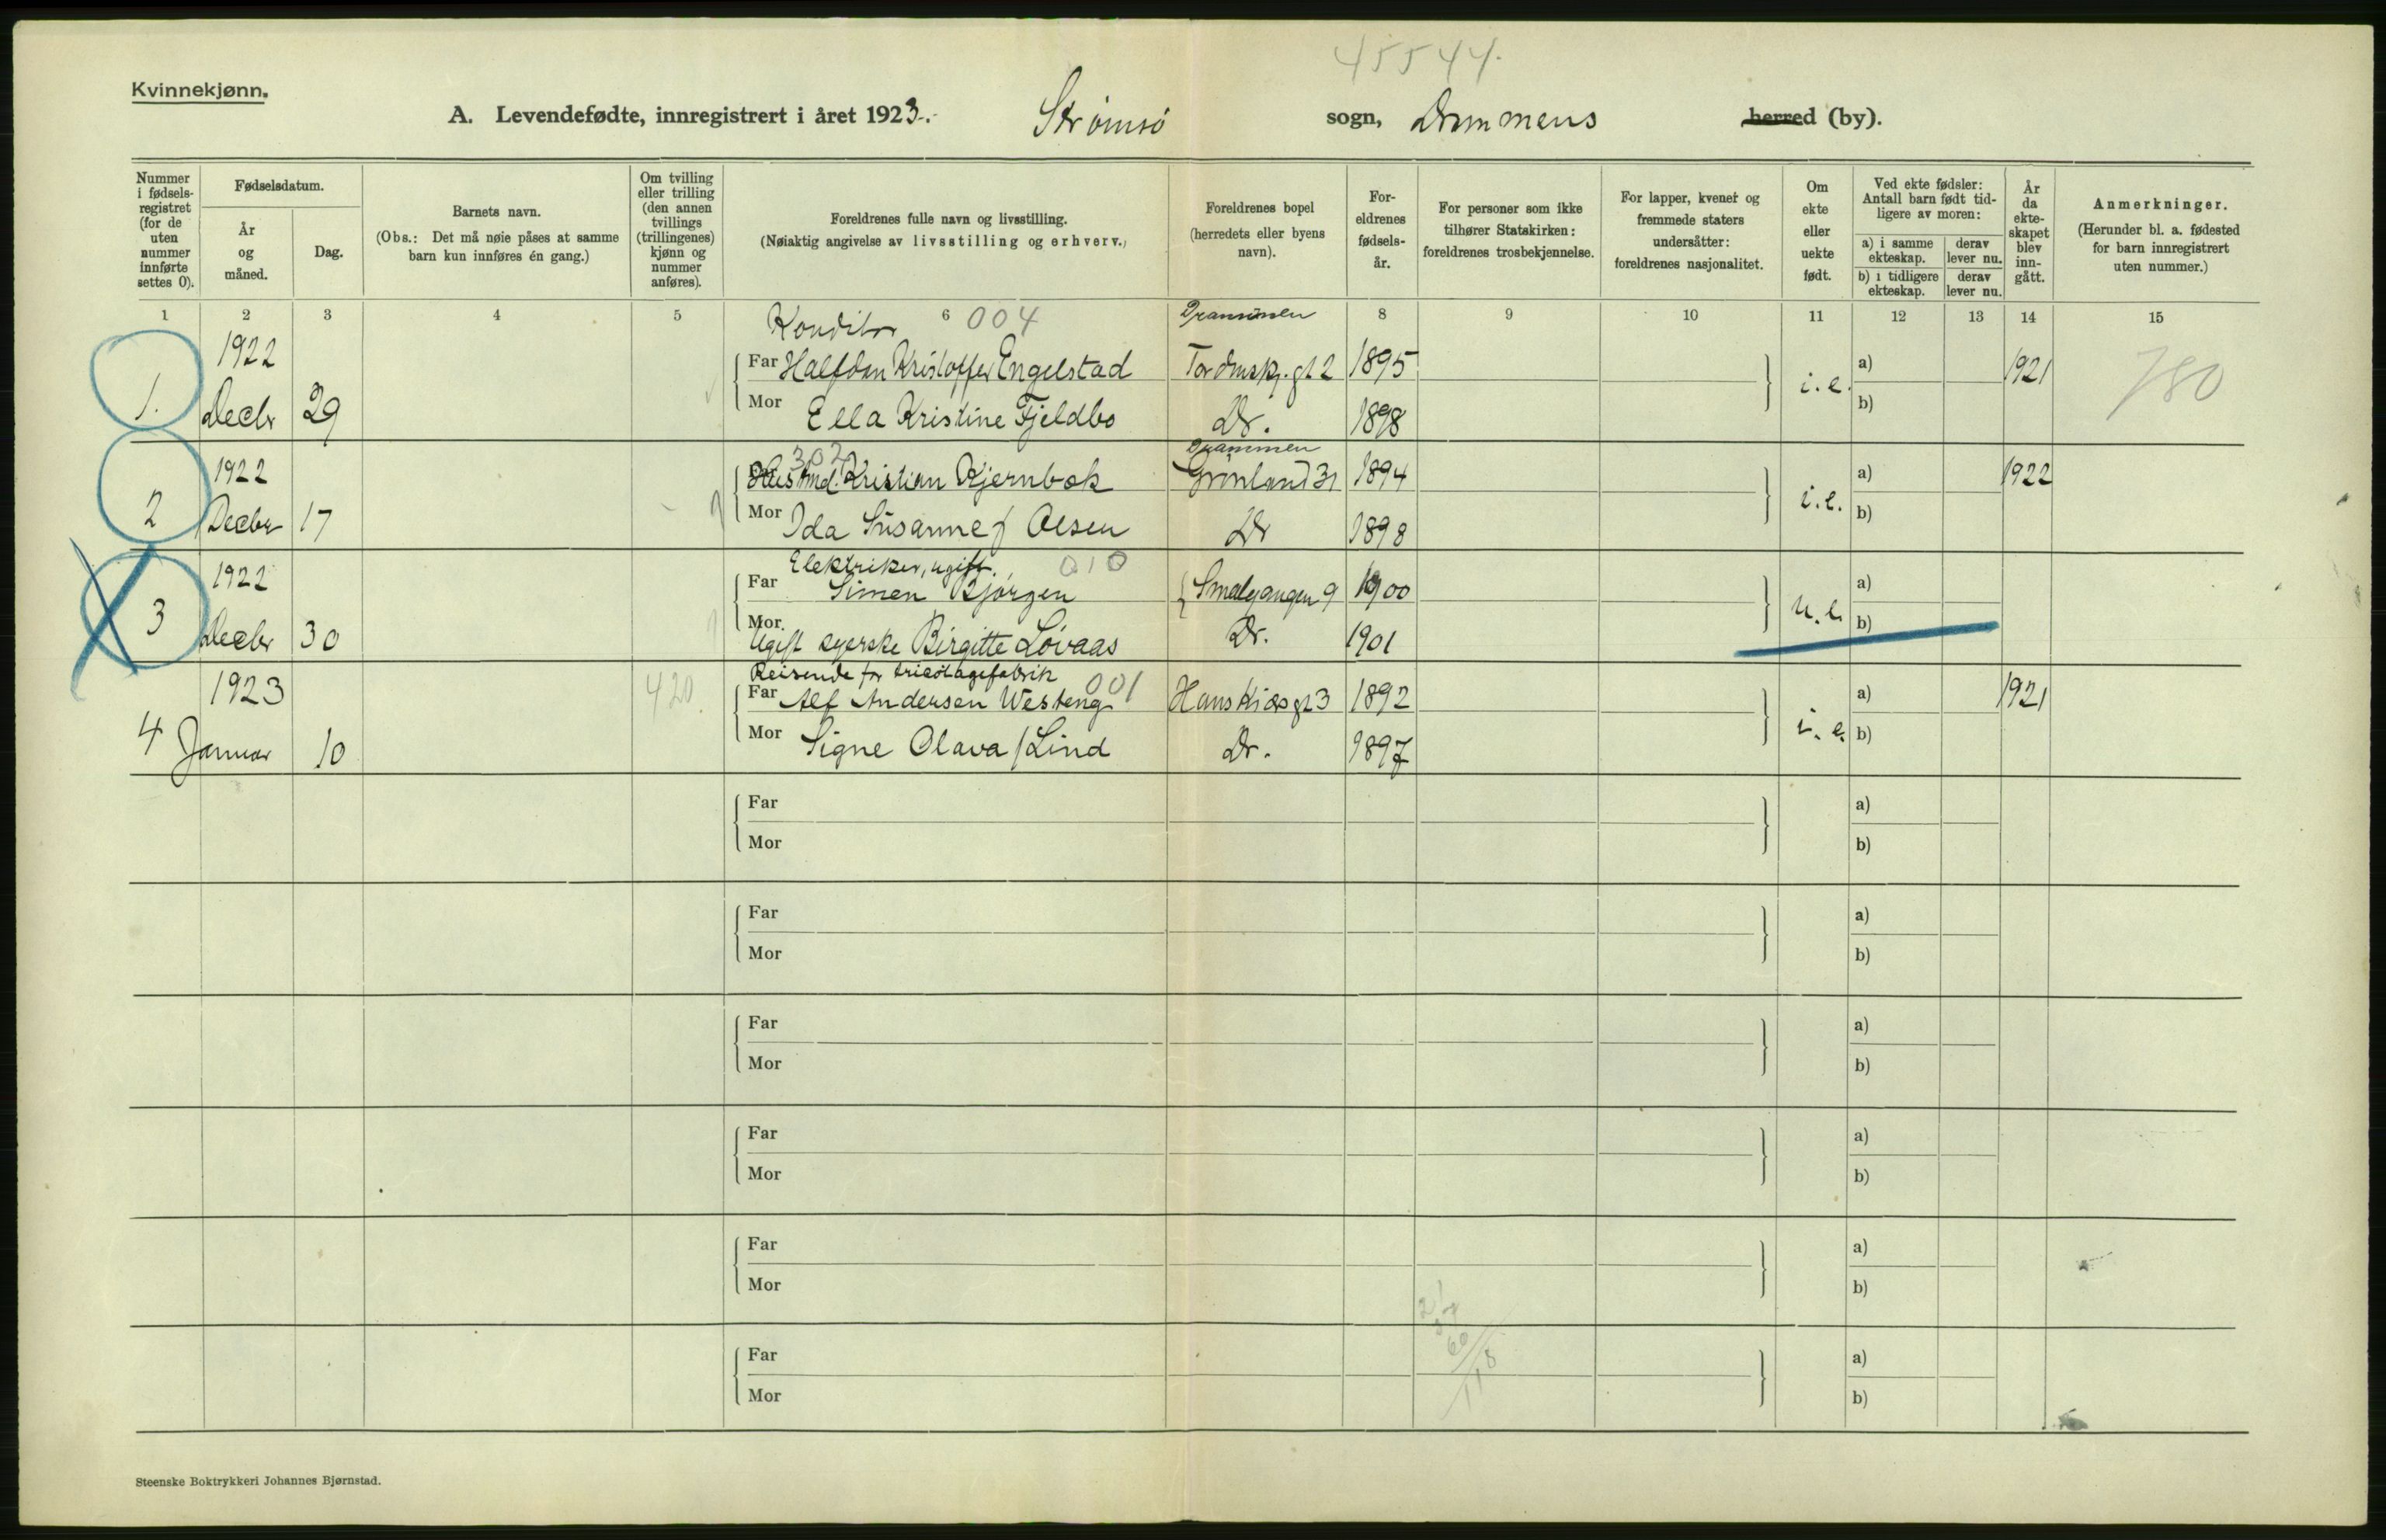 45544.
Kvinnekjønn.
A. Levendefødte, innregistrert i året 1923. Strømsö sogn, Drammens herred (by).
Nummer i fødselsregistret (for de uten nummer innførte settes 0).
Fødselsdatum.
År og måned.
Dag.
Barnets navn.
(Obs.: Det må nøie påses at samme barn kun innføres én gang.)
Om tvilling eller trilling (den annen tvillings (trillingenes) kjønn og nummer anføres).
Foreldrenes fulle navn og livsstilling.
(Nøiaktig angivelse av livsstilling og erhverv.)
Foreldrenes bopel (herredets eller byens navn).
Foreldrenes fødselsår.
For personer som ikke tilhører Statskirken: foreldrenes trosbekjennelse.
For lapper, kvener og fremmede staters undersåtter: foreldrenes nasjonalitet.
Om ekte eller uekte født.
Ved ekte fødsler: Antall barn født tidligere av moren:
a) i samme ekteskap.
derav lever nu.
b) i tidligere ekteskap.
derav lever nu.
År da ekteskapet blev inngått.
Anmerkninger.
(Herunder bl. a. fødested for barn innregistrert uten nummer.)
1 2 3 4 5 6 8 9 10 11 12 13 14 15
Konditor 004 Drammen
1922 Far Halfdan Kristoffer Engelstad gt 2 1895 i.e. a) 1921 780
1. Decbr 29 Mor Ella Kristine Fjeldbo Dr. 1898 b)
302 Drammen
1922 Kristian Kjernbæk Grönland 31 1894 i.e. a) 1922
2 Decbr 17 Mor Ida Susanne Olsen Dr 1898 b)
Elektriker, ugift. 010
1922 Far Simen Bjørgen Smalgangen 9 1900 u.e. a)
3 Decbr 30 Mor Ugift syerske Birgitte Lövaas Dr. 1901 b)
Reisende for tricotagefabrik 001
1923 420 Far Alf Andersen Westeng Hans Kiærs gt 3 1892 i.e. a) 1921
4 Januar 10 Mor Signe Olava Lind Dr. 1897 b)
Far a)
Mor b)
Far a)
Mor b)
Far a)
Mor b)
Far a)
Mor b)
Far a)
Mor b)
Far a)
Mor b)
118
Steenske Boktrykkeri Johannes Bjørnstad.